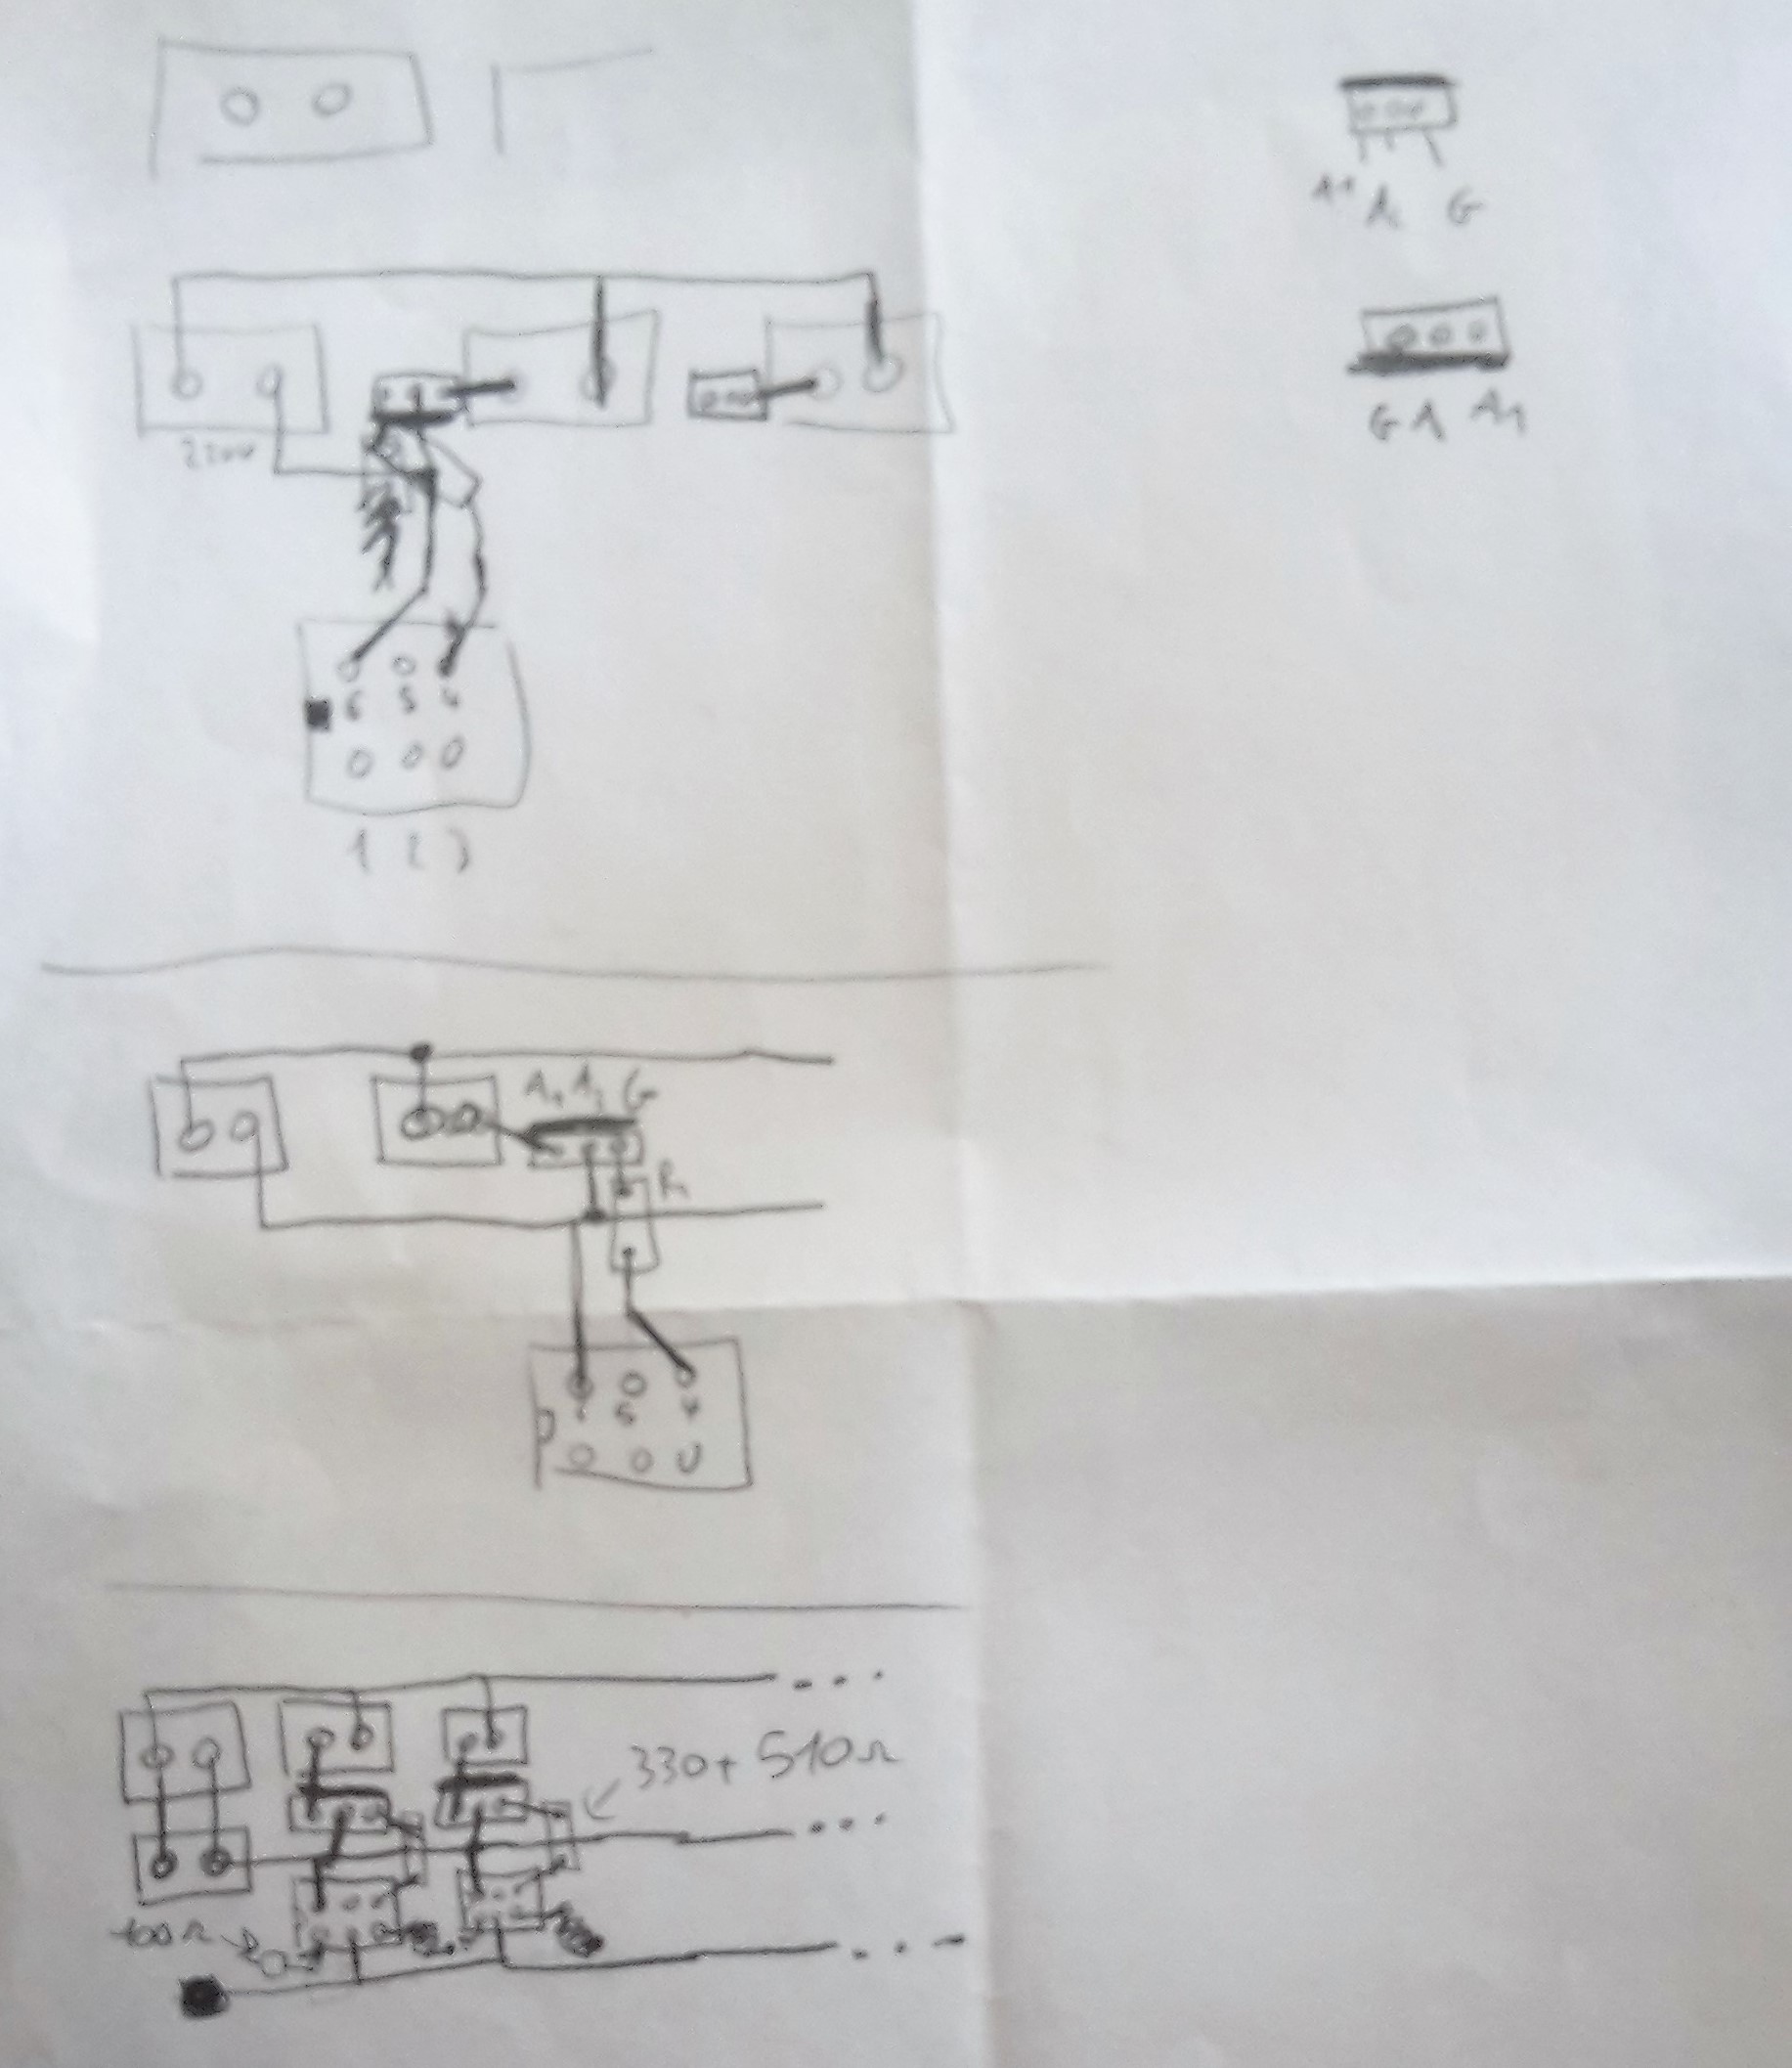 A1 A2 G
G A A1
220V
6 5 4
1 2 3
A1 A2 G
R1
5 4
330 + 510Ω
100Ω